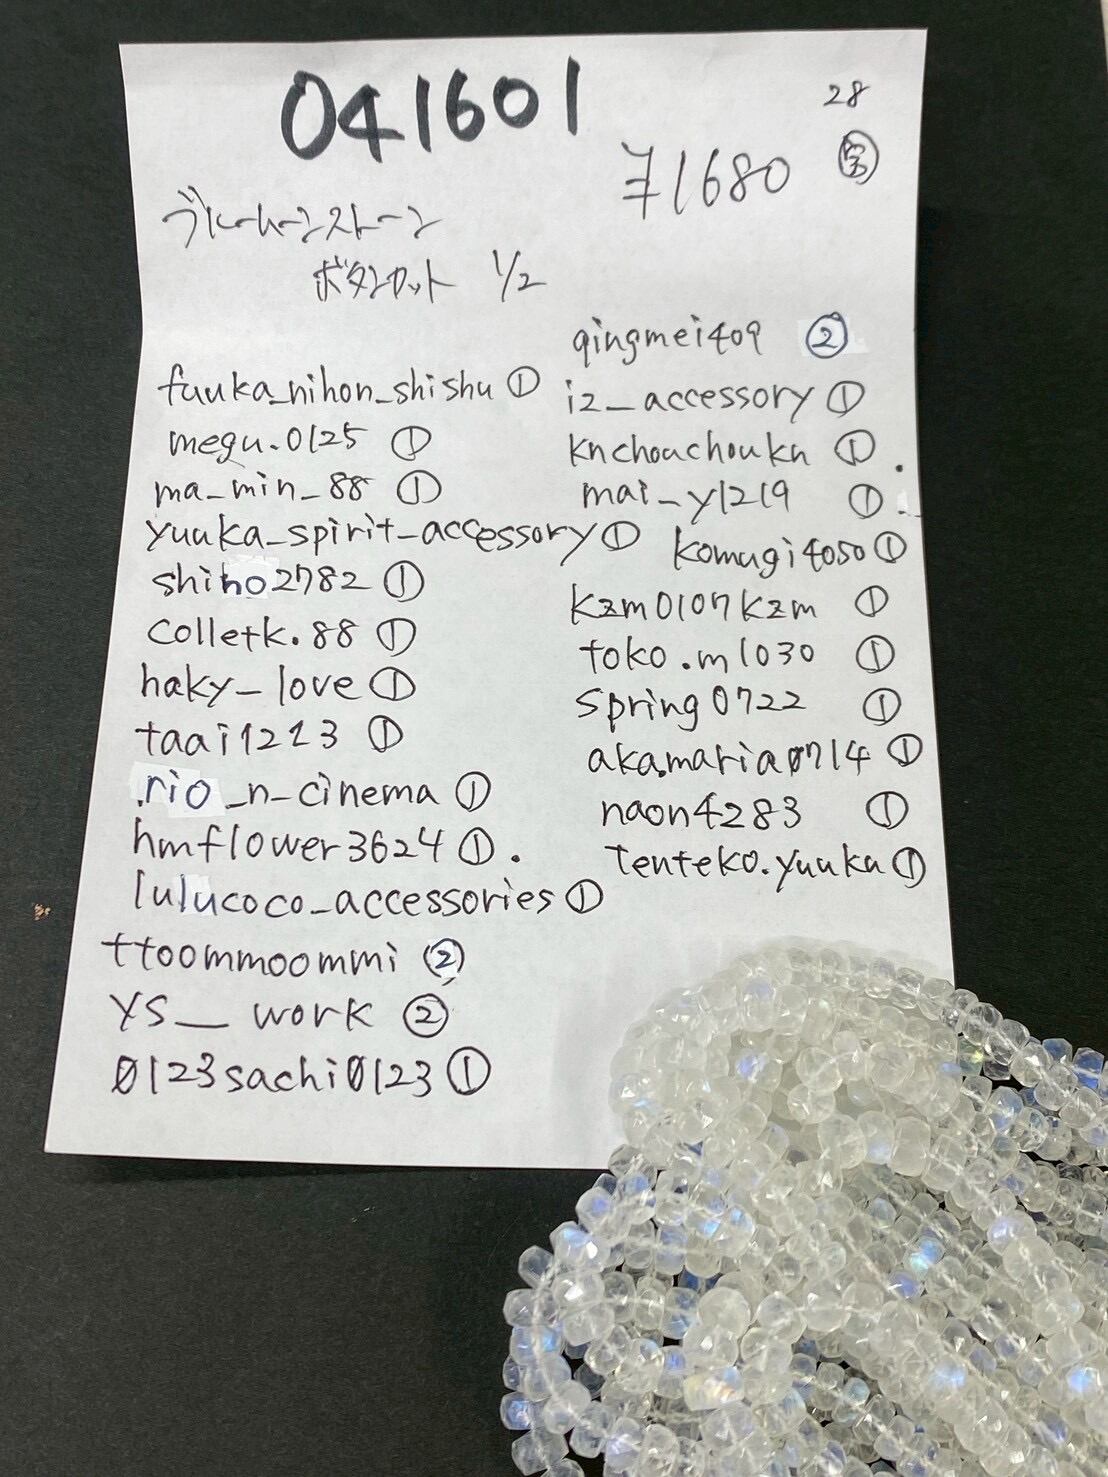 041601
28
¥1680
完
ブルームーンストーン
ボタンカット 1/2
fuuka_nihon_shishu ①
megu.0125 ①
ma_min_88 ①
yuuka_spirit_accessory ①
shiho2782 ①
colletk.88 ①
haky_love ①
taai1213 ①
.rio_n_cinema ①
hmflower3624 ①.
lulucoco_accessories ①
ttoommoommi ②
YS__work ②
0123sachi0123 ①
qingmei409 ②
iz_accessory ①
knchouchoukn ①.
mai_y1219 ①.
komugi4050 ①
kzm0107kzm ①
toko.m1030 ①
spring0722 ①
aka.maria0714 ①
naon4283 ①
tenteko.yuuka ①